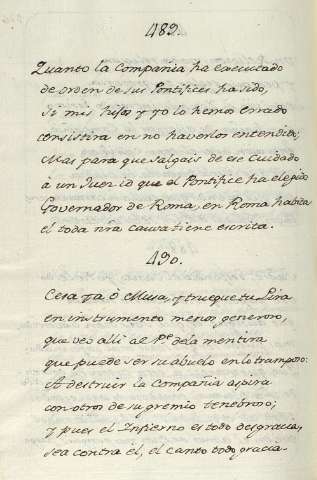 489.
Quanto la Compañia ha executado
de orden de sus Pontifices ha sido,
si mis hijos y yo lo hemos errado
consistira en no haverlos entendido;
Mas para que salgais de ese cuidado
à un Juez id que el Pontifice ha elegido
Governador de Roma, en Roma habita
el toda nra causa tiene escrita.
490.
Cesa ya ò Musa, y trueque tu Lira
en instrumento menos generoso,
que veo alli al Pe. de la mentira
que puede ser su abuelo en lo tramposo:
A destruir la Compañia aspira
con otros de su gremio tenebroso;
y pues el Infierno es todo desgracia,
sea contra él, el canto todo gracia.